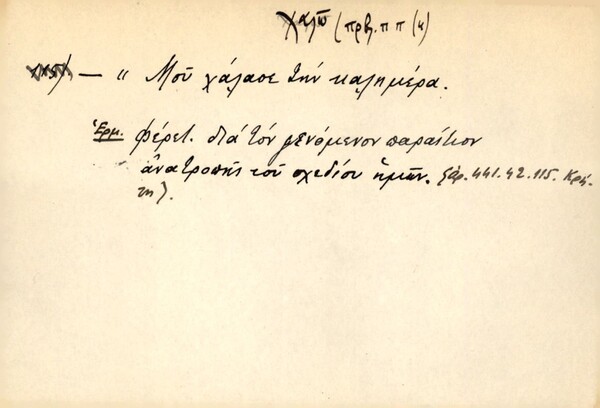 χαλῶ (πρβ. π π (κ)
— " Μοῦ χάλασε τὴν καλημέρα.
Ἑρμ. φέρετ. διὰ τὸν γενόμενον παραίτιον
ἀνατροπῆς τοῦ σχεδίου ἡμῶν. (λάρ. 441. 42. 115. Κρή-
τη).